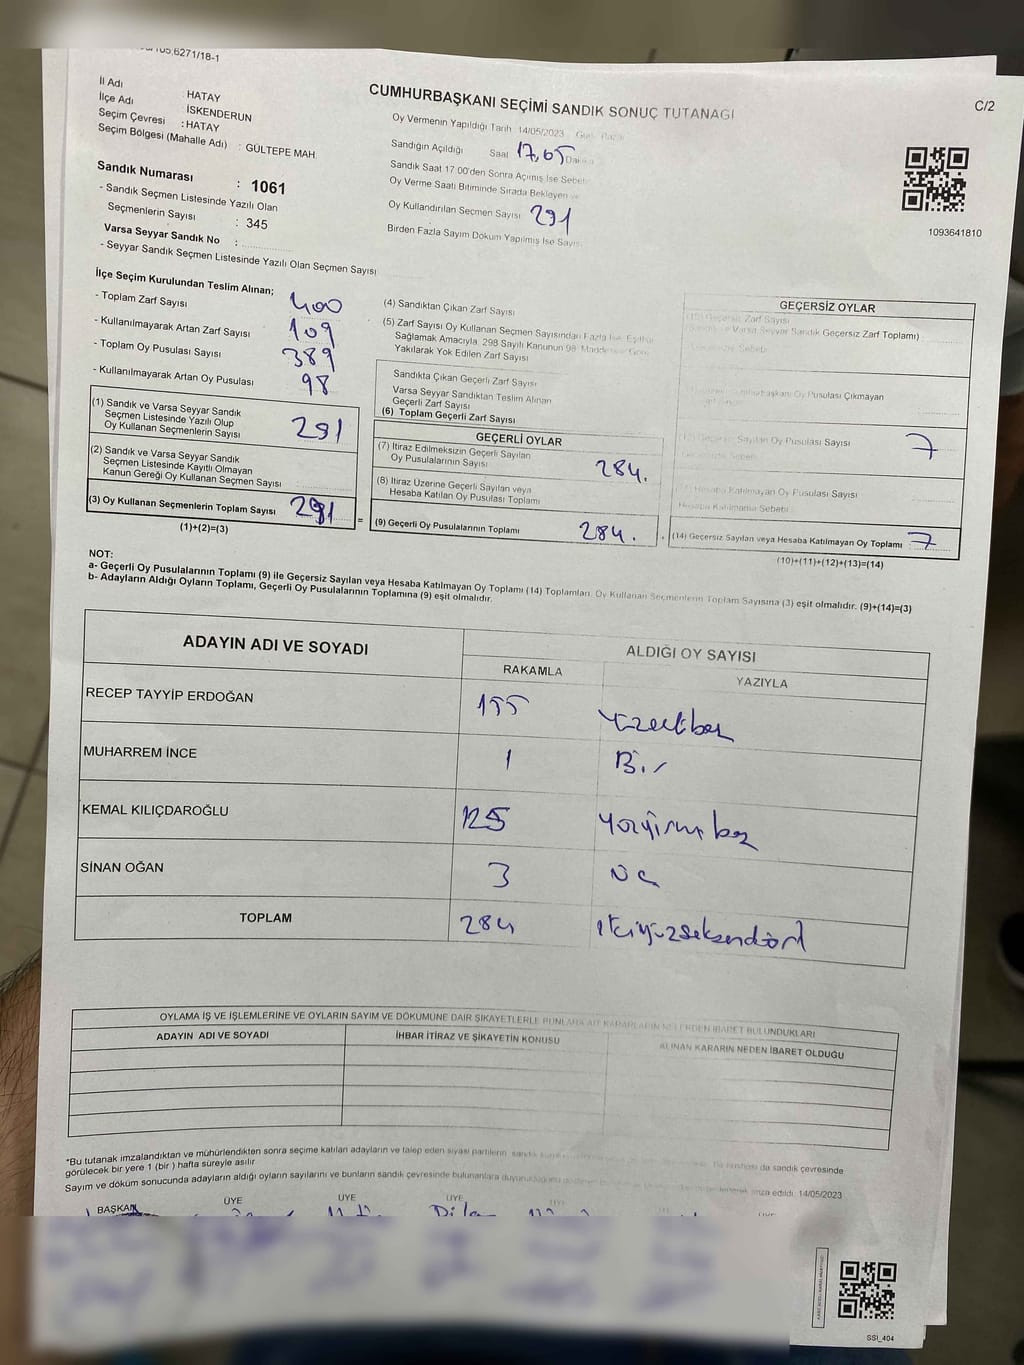 6271/18-1
İl Adı
HATAY
İlçe Adı
İSKENDERUN
Seçim Çevresi : HATAY
Seçim Bölgesi (Mahalle Adı) : GÜLTEPE MAH
Sandık Numarası : 1061
- Sandık Seçmen Listesinde Yazılı Olan
Seçmenlerin Sayısı : 345
Varsa Seyyar Sandık No :
- Seyyar Sandık Seçmen Listesinde Yazılı Olan Seçmen Sayısı
CUMHURBAŞKANI SEÇİMİ SANDIK SONUÇ TUTANAĞI
C/2
Oy Vermenin Yapıldığı Tarih 14/05/2023
Sandığın Açıldığı Saat 17,05
Sandık Saat 17.00'den Sonra Açılmış İse Sebebi
Oy Verme Saati Bitiminde Sırada Bekleyen
Oy Kullandırılan Seçmen Sayısı 291
Birden Fazla Sayım Döküm Yapılmış İse Sayısı
1093641810
İlçe Seçim Kurulundan Teslim Alınan;
- Toplam Zarf Sayısı 400
- Kullanılmayarak Artan Zarf Sayısı 109
- Toplam Oy Pusulası Sayısı 389
- Kullanılmayarak Artan Oy Pusulası 98
(1) Sandık ve Varsa Seyyar Sandık
Seçmen Listesinde Yazılı Olup
Oy Kullanan Seçmenlerin Sayısı 291
(2) Sandık ve Varsa Seyyar Sandık
Seçmen Listesinde Kayıtlı Olmayan
Kanun Gereği Oy Kullanan Seçmen Sayısı :
(3) Oy Kullanan Seçmenlerin Toplam Sayısı 291
(1)+(2)=(3)
(4) Sandıktan Çıkan Zarf Sayısı
(5) Zarf Sayısı Oy Kullanan Seçmen Sayısından Fazla İse, Eşitliği
Sağlamak Amacıyla, 298 Sayılı Kanunun 98. Maddesine Göre
Yakılarak Yok Edilen Zarf Sayısı
Sandıkta Çıkan Geçerli Zarf Sayısı
Varsa Seyyar Sandıktan Teslim Alınan
Geçerli Zarf Sayısı
(6) Toplam Geçerli Zarf Sayısı
GEÇERLİ OYLAR
(7) İtiraz Edilmeksizin Geçerli Sayılan
Oy Pusulalarının Sayısı 284.
(8) İtiraz Üzerine Geçerli Sayılan veya
Hesaba Katılan Oy Pusulası Toplamı
= (9) Geçerli Oy Pusulalarının Toplamı 284.
GEÇERSİZ OYLAR
(10) Geçersiz Zarf Sayısı
(Sandık ve Varsa Seyyar Sandık Geçersiz Zarf Toplamı)
Geçersizlik Sebebi
Cumhurbaşkanı Oy Pusulası Çıkmayan
(12) Geçersiz Sayılan Oy Pusulası Sayısı 7
Geçersizlik Sebebi
Hesaba Katılmayan Oy Pusulası Sayısı
Hesaba Katılmama Sebebi
(14) Geçersiz Sayılan veya Hesaba Katılmayan Oy Toplamı 7
(10)+(11)+(12)+(13)=(14)
NOT:
a- Geçerli Oy Pusulalarının Toplamı (9) ile Geçersiz Sayılan veya Hesaba Katılmayan Oy Toplamı (14) Toplamları, Oy Kullanan Seçmenlerin Toplam Sayısına (3) eşit olmalıdır. (9)+(14)=(3)
b- Adayların Aldığı Oyların Toplamı, Geçerli Oy Pusulalarının Toplamına (9) eşit olmalıdır.
ADAYIN ADI VE SOYADI
ALDIĞI OY SAYISI
RAKAMLA YAZIYLA
RECEP TAYYİP ERDOĞAN 155 Yüzellibeş
MUHARREM İNCE 1 Bir
KEMAL KILIÇDAROĞLU 125 Yüzyirmibeş
SİNAN OĞAN 3 üç
TOPLAM 284 ikiyüzseksendört
OYLAMA İŞ VE İŞLEMLERİNE VE OYLARIN SAYIM VE DÖKÜMÜNE DAİR ŞİKAYETLERLE BUNLARA AİT KARARLARIN NELERDEN İBARET BULUNDUKLARI
ADAYIN ADI VE SOYADI
İHBAR İTİRAZ VE ŞİKAYETİN KONUSU
ALINAN KARARIN NEDEN İBARET OLDUĞU
*Bu tutanak imzalandıktan ve mühürlendikten sonra seçime katılan adayların ve talep eden siyasi partilerin da sandık çevresinde
görülecek bir yere 1 (bir) hafta süreyle asılır
Sayım ve döküm sonucunda adayların aldığı oyların sayılarını ve bunların sandık çevresinde bulunanlara duyurulduğunu imza edildi. 14/05/2023
BAŞKAN ÜYE ÜYE ÜYE ÜYE ÜYE
SSİ_404